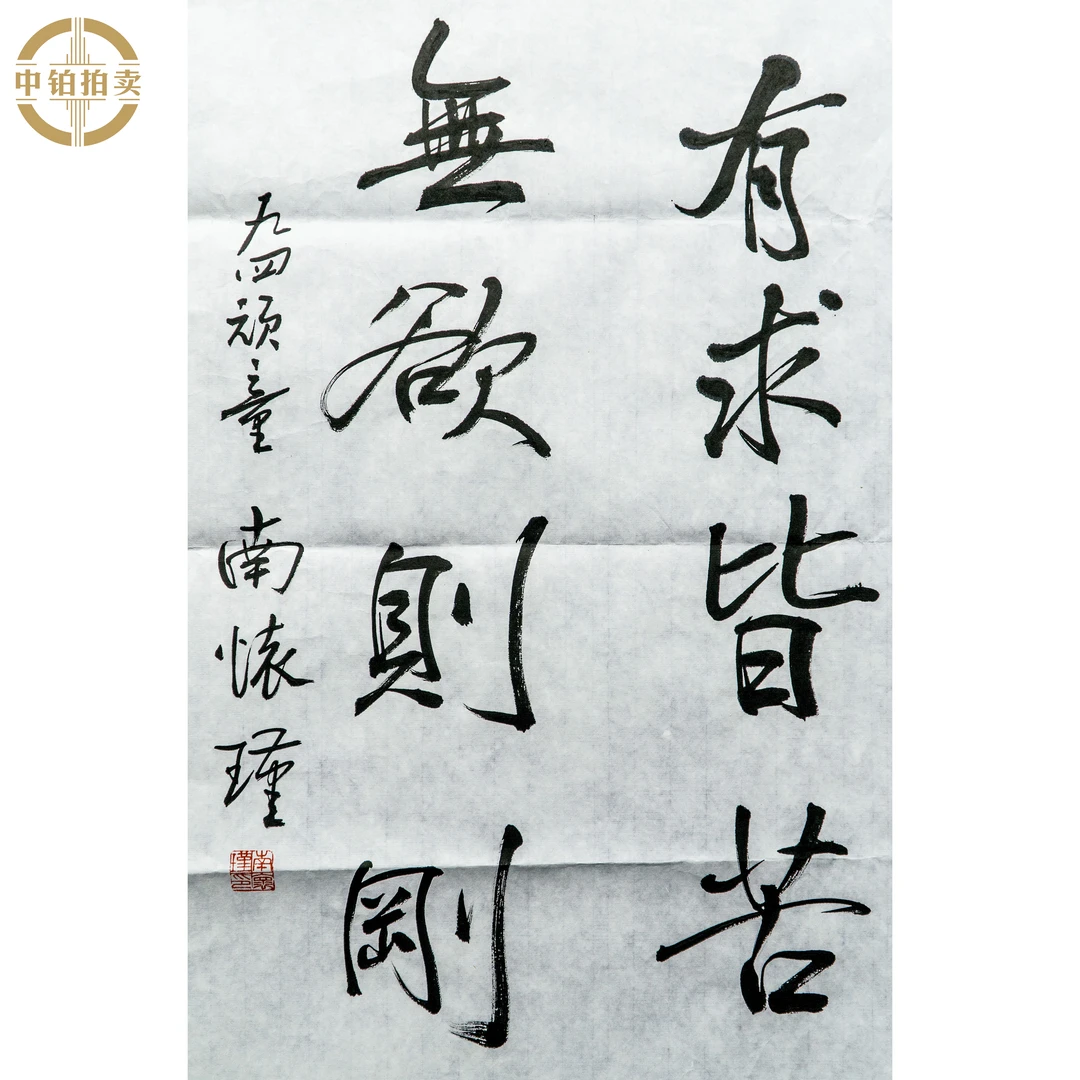 中铂拍卖
有求皆苦
無欲則剛
九四頑童 南懷瑾